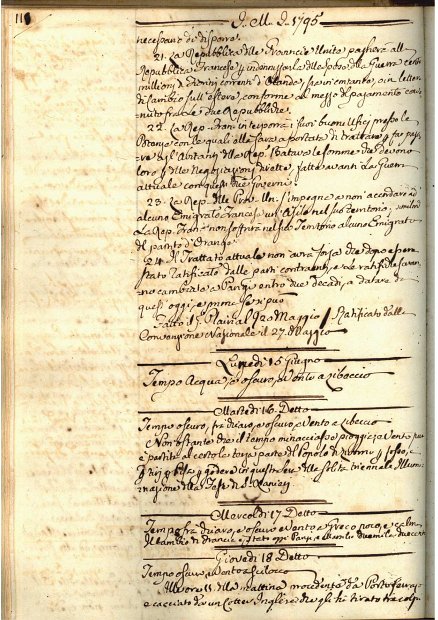 J. M. J. 1795
necessarie di disporre.
21. La Repubblica delle Provincie Unite pagherà alla
Repubblica Francese p indennizzarla delle spese della Guerra cento
milioni di fiorini correnti d'Olanda, sia in contante, o in lettere
di cambio sull'estero, conforme al mezzo di pagamento con-
venuto fra le due Repubbliche.
22. La Rep. Fran. interporrà i suoi buoni ufizj presso le
Potenze con le quali ella sarà a portata di trattare p far paga-
re agl'Abitanti della Rep. Batava le somme che devono
loro p delle Negoziazioni dirette, fatte avanti la Guerra
attuale con questi due Governi.
23. La Rep. delle Prov. Un. s'impegna a non accordare ad
alcuno Emigrato francese un'Asilo nel suo territorio,
La Rep. Fran. non soffrirà nel suo Territorio alcuno Emigrato
del partito d'Orange.
24. Il Trattato attuale non avrà forza che dopo essere
stato ratificato dalle parti contraenti, e le ratifiche saran-
no cambiate a Parigi entro due Decadi, a datare da
quest'oggi, e prima se si può
Fatto Maggio Ratificato dalla
Convenzione Nazionale il 27 Maggio
Lunedì 15 Giugno
Tempo Acqua, oscuro, e Vento a Libeccio
Martedì 16 Detto
Tempo oscuro, fra chiaro, e oscuro e Vento a Libeccio
Non ostante che il tempo minacciasse pioggia, e Vento pure
è partita al certo la terza parte del Popolo di Livorno p
Pisa p godere in questa sera della solita triennale Illumi-
nazione della Festa di S. Ranieri
Mercoldì 17 Detto
Tempo fra chiaro, e oscuro e Vento a Greco poco, e calma
Il cambio di Francia è stato
Giovedì 18 Detto
Tempo oscuro, e Vento a Scilocco
All'ore 11 della mattina proveniente da Porto Ferrajo
e cacciato da un Cotter Inglese che gli ha tirato tra colpi